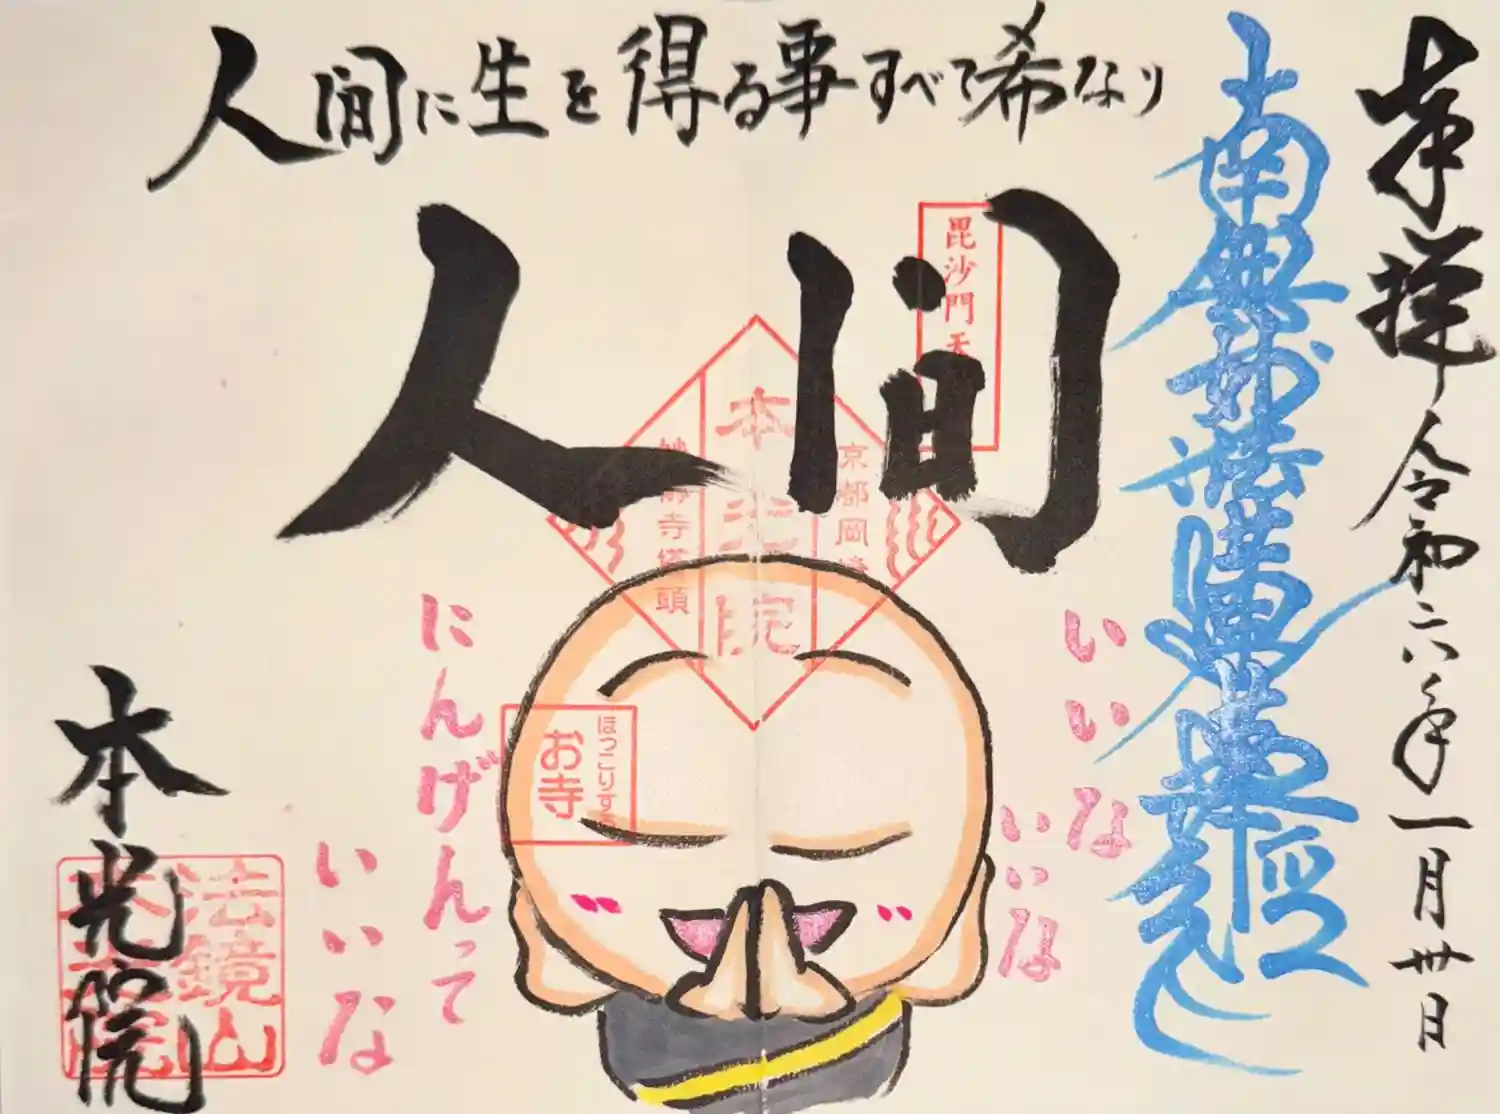 人間に生を得る事すべて希なり
奉拝 令和六年一月卅日
南無妙法蓮華経
人間
毘沙門天
京都岡崎
本光院
寺塔頭
いいな
いいな
にんげんって
いいな
ほっこりする
お寺
本光院
法鏡山
本光院